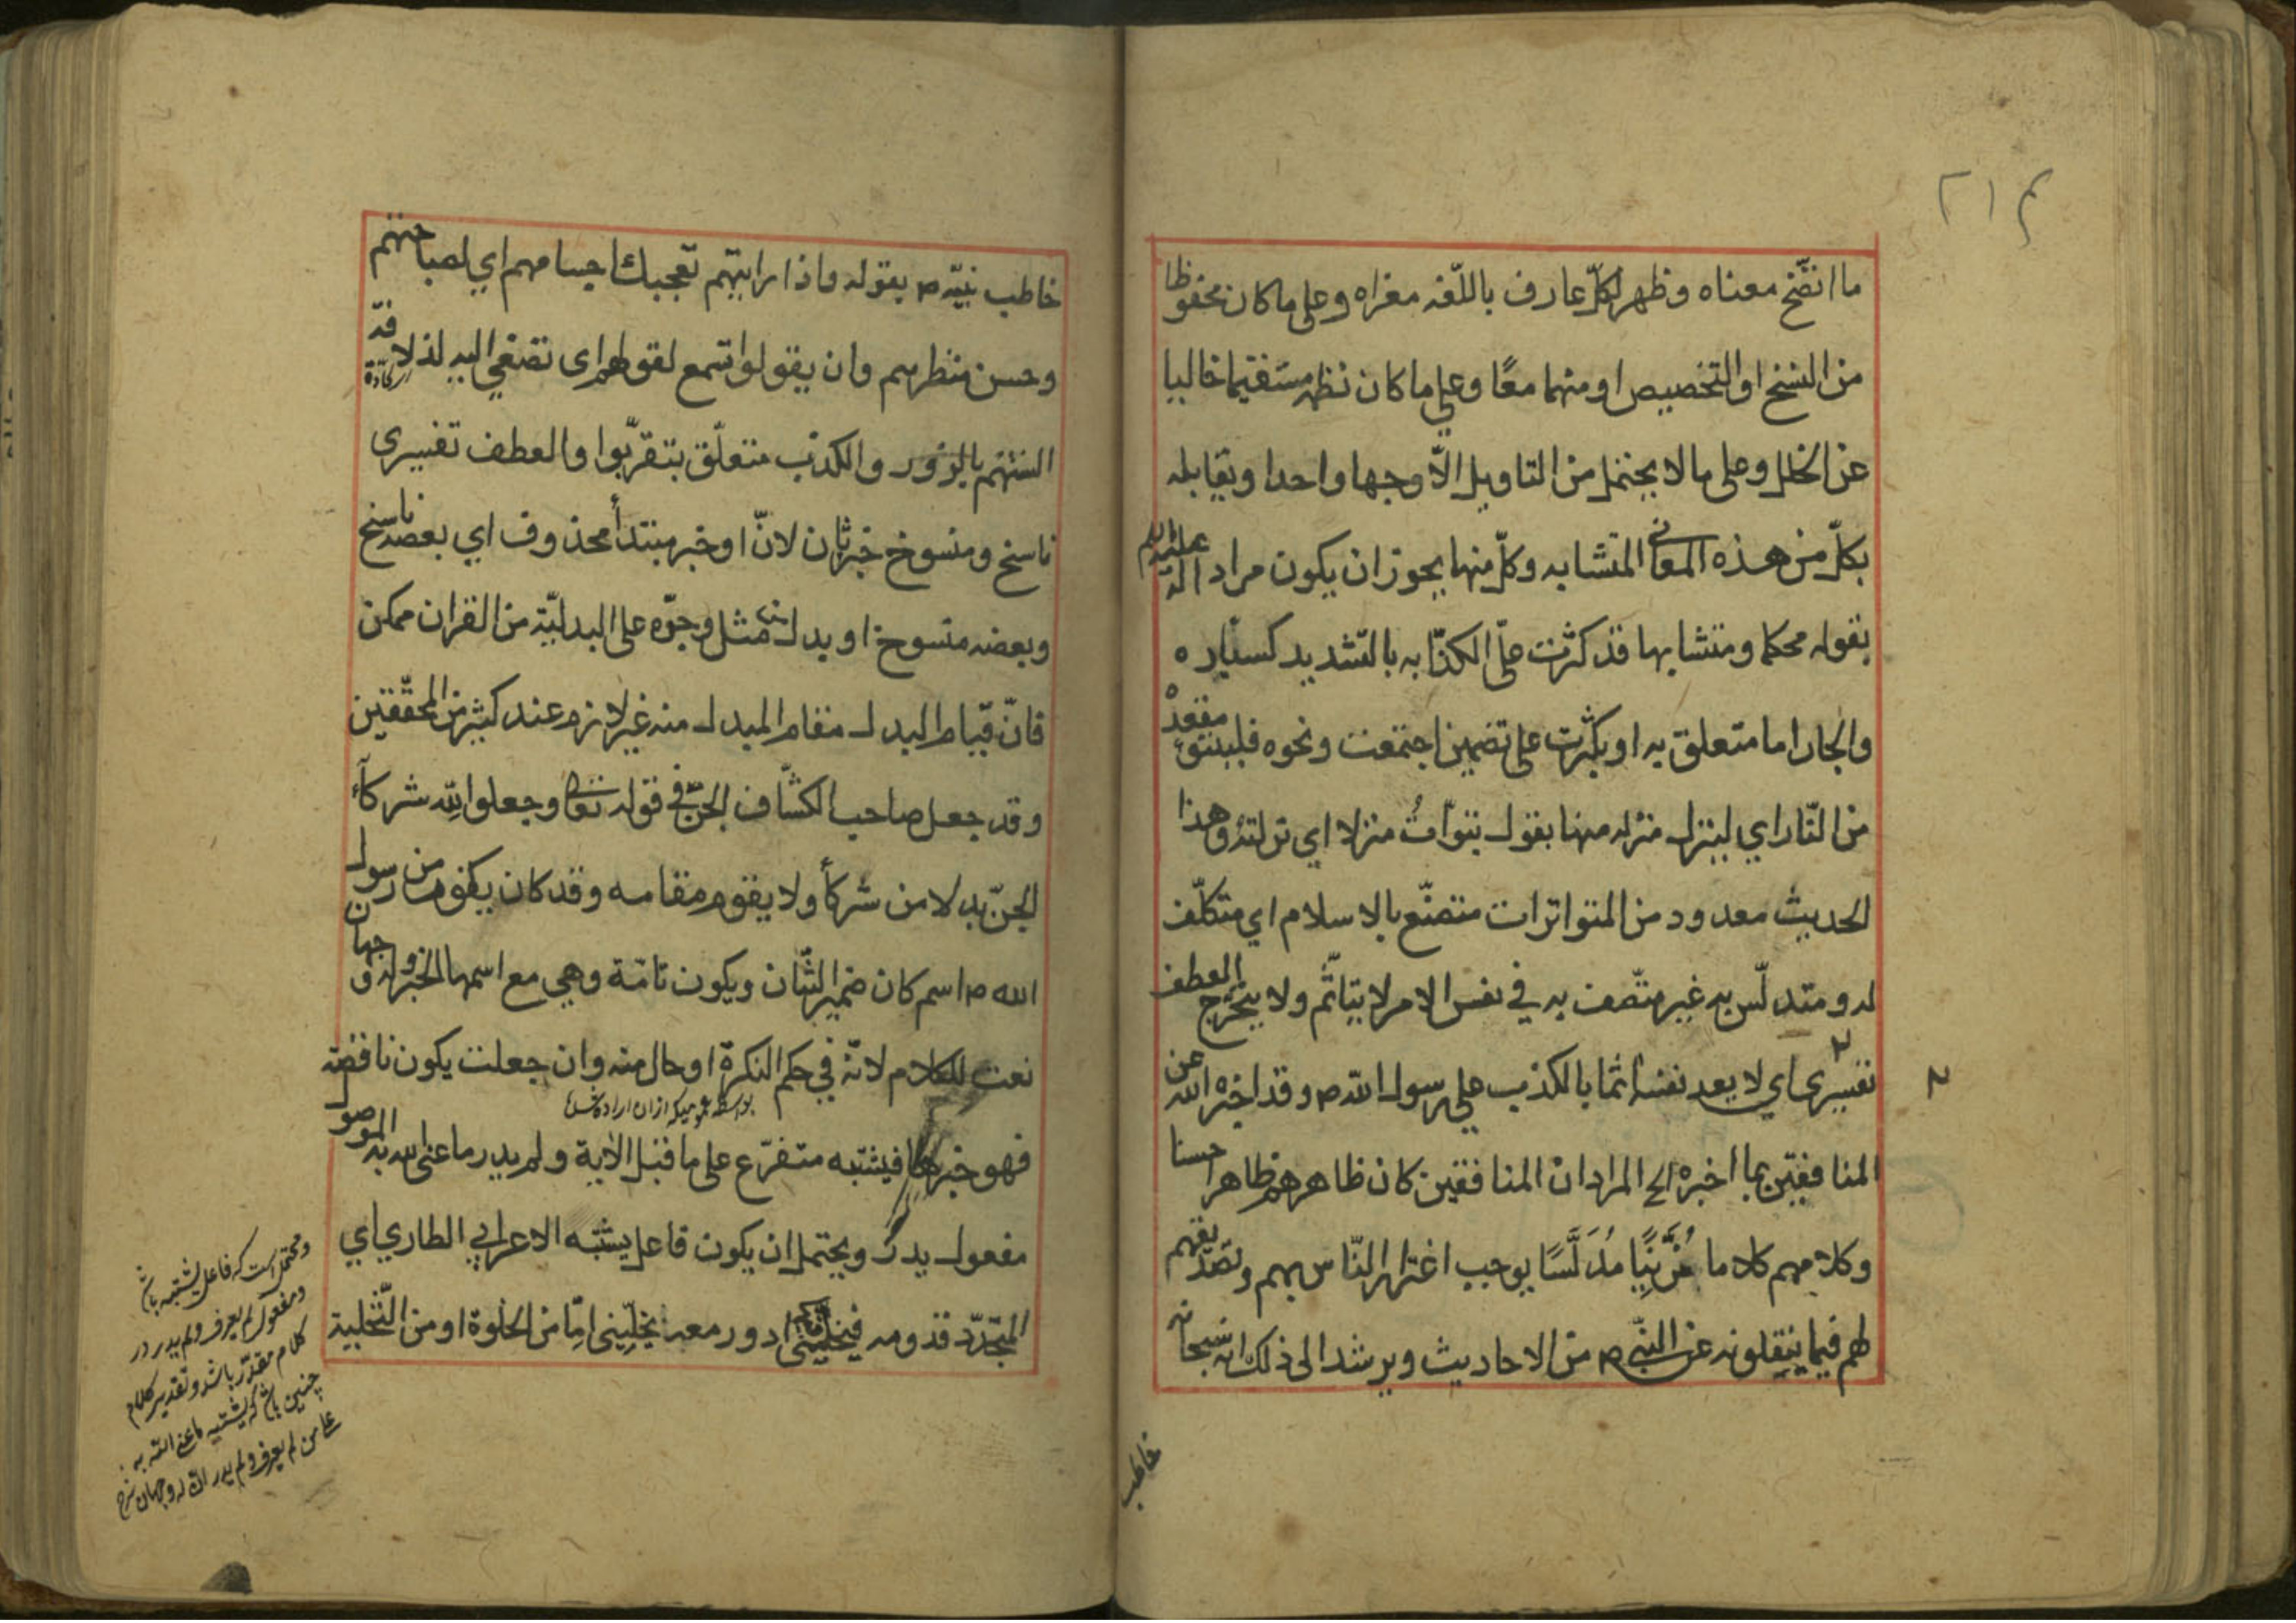 ما اتضح معناه وظهر لكل عارف باللغة مغزاه وعلى ما كان محفوظا
من النسخ او التخصيص او منهما معًا وعلى ما كان نظمه مستقيما خاليا
عن الخلل وعلى ما لا يحتمل من التاويل الّا وجها واحدا ويقابله
بكلّ من هذه المعاني المتشابه وكلّ منها يجوز ان يكون مراد له عليه السلم
بقوله محكما ومتشابها قد كثرت علىّ الكذّابه بالتشديد كسيّاره
والجار اما متعلق به او بكثرت على تضمين اجتمعت ونحوه فليتبوّء مقعده
من النّار اي لينزل منزله منها يقول تبوّأت منزلا اي نزلته وهذا
الحديث معدود من المتواترات متصنّع بالاسلام اي متكلّف
له ومتدلّس به غير متّصف به في نفس الامر لا يتاثّم ولا يتحرّج العطف
تفسيرى اي لا يعد نفسه اثما بالكذب على رسول الله ص وقد اخبره الله عن
المنافقين بما اخبره الخ المراد ان المنافقين كان ظاهرهم ظاهرا حسنا
وكلامهم كلاما مُزَيَّنًا مُدَلَّسًا يوجب اغترار النّاس بهم وتصديقهم
لهم فيما ينقلونه عن النبّي ص من الاحاديث ويرشد الى ذلك انه سبحانه
خاطب
خاطب نبيّه ص بقوله واذا رايتهم تعجبك اجسامهم اي لصباحتهم
وحسن منظرهم وان يقولوا تسمع لقولهم اى تصغي اليه لذلاقة
السنتهم بالزور والكذب متعلّق بتقرّبوا والعطف تفسيرى
ناسخ ومنسوخ خبر ثان لانّ او خبر مبتدأ محذوف اي بعضه ناسخ
وبعضه منسوخ او بدل من مثل وجرّه على البدليّة من القران ممكن
فانّ قيام البدل مقام المبدل منه غير لازم عند كثير من المحققين
وقد جعل صاحب الكشّاف الجنّ في قوله تعالى وجعلوا لِلّه شركآء
الجنّ بدلا من شركاء ولا يقوم مقامه وقد كان يكون من رسول
الله ص اسم كان ضمير الشّان ويكون تامّة وهي مع اسمها الخبر وله وجهان
نعت للكلام لانّه في حكم النكرة او حال منه وان جعلت يكون ناقصة
فهو خبرها فيشتبه متفرّع على ما قبل الاية ولم يدر ما عنى الله به الموصول
مفعول يدر ويحتمل ان يكون فاعل يشتبه الاعرابي الطاري اي
المتجدّد قدومه فيخلّيني ادور معه يخلّيني امّا من الخلوة او من التّخلية
ومحتمل است كه فاعل يشتبه باشد
ومفعول لم يعرف ولم يدر در
كلام مقدّر باشد وتقدير كلام
چنين باشد كه يشتبه ما عنى الله به
على من لم يعرف ولم يدر انّ له وجهان